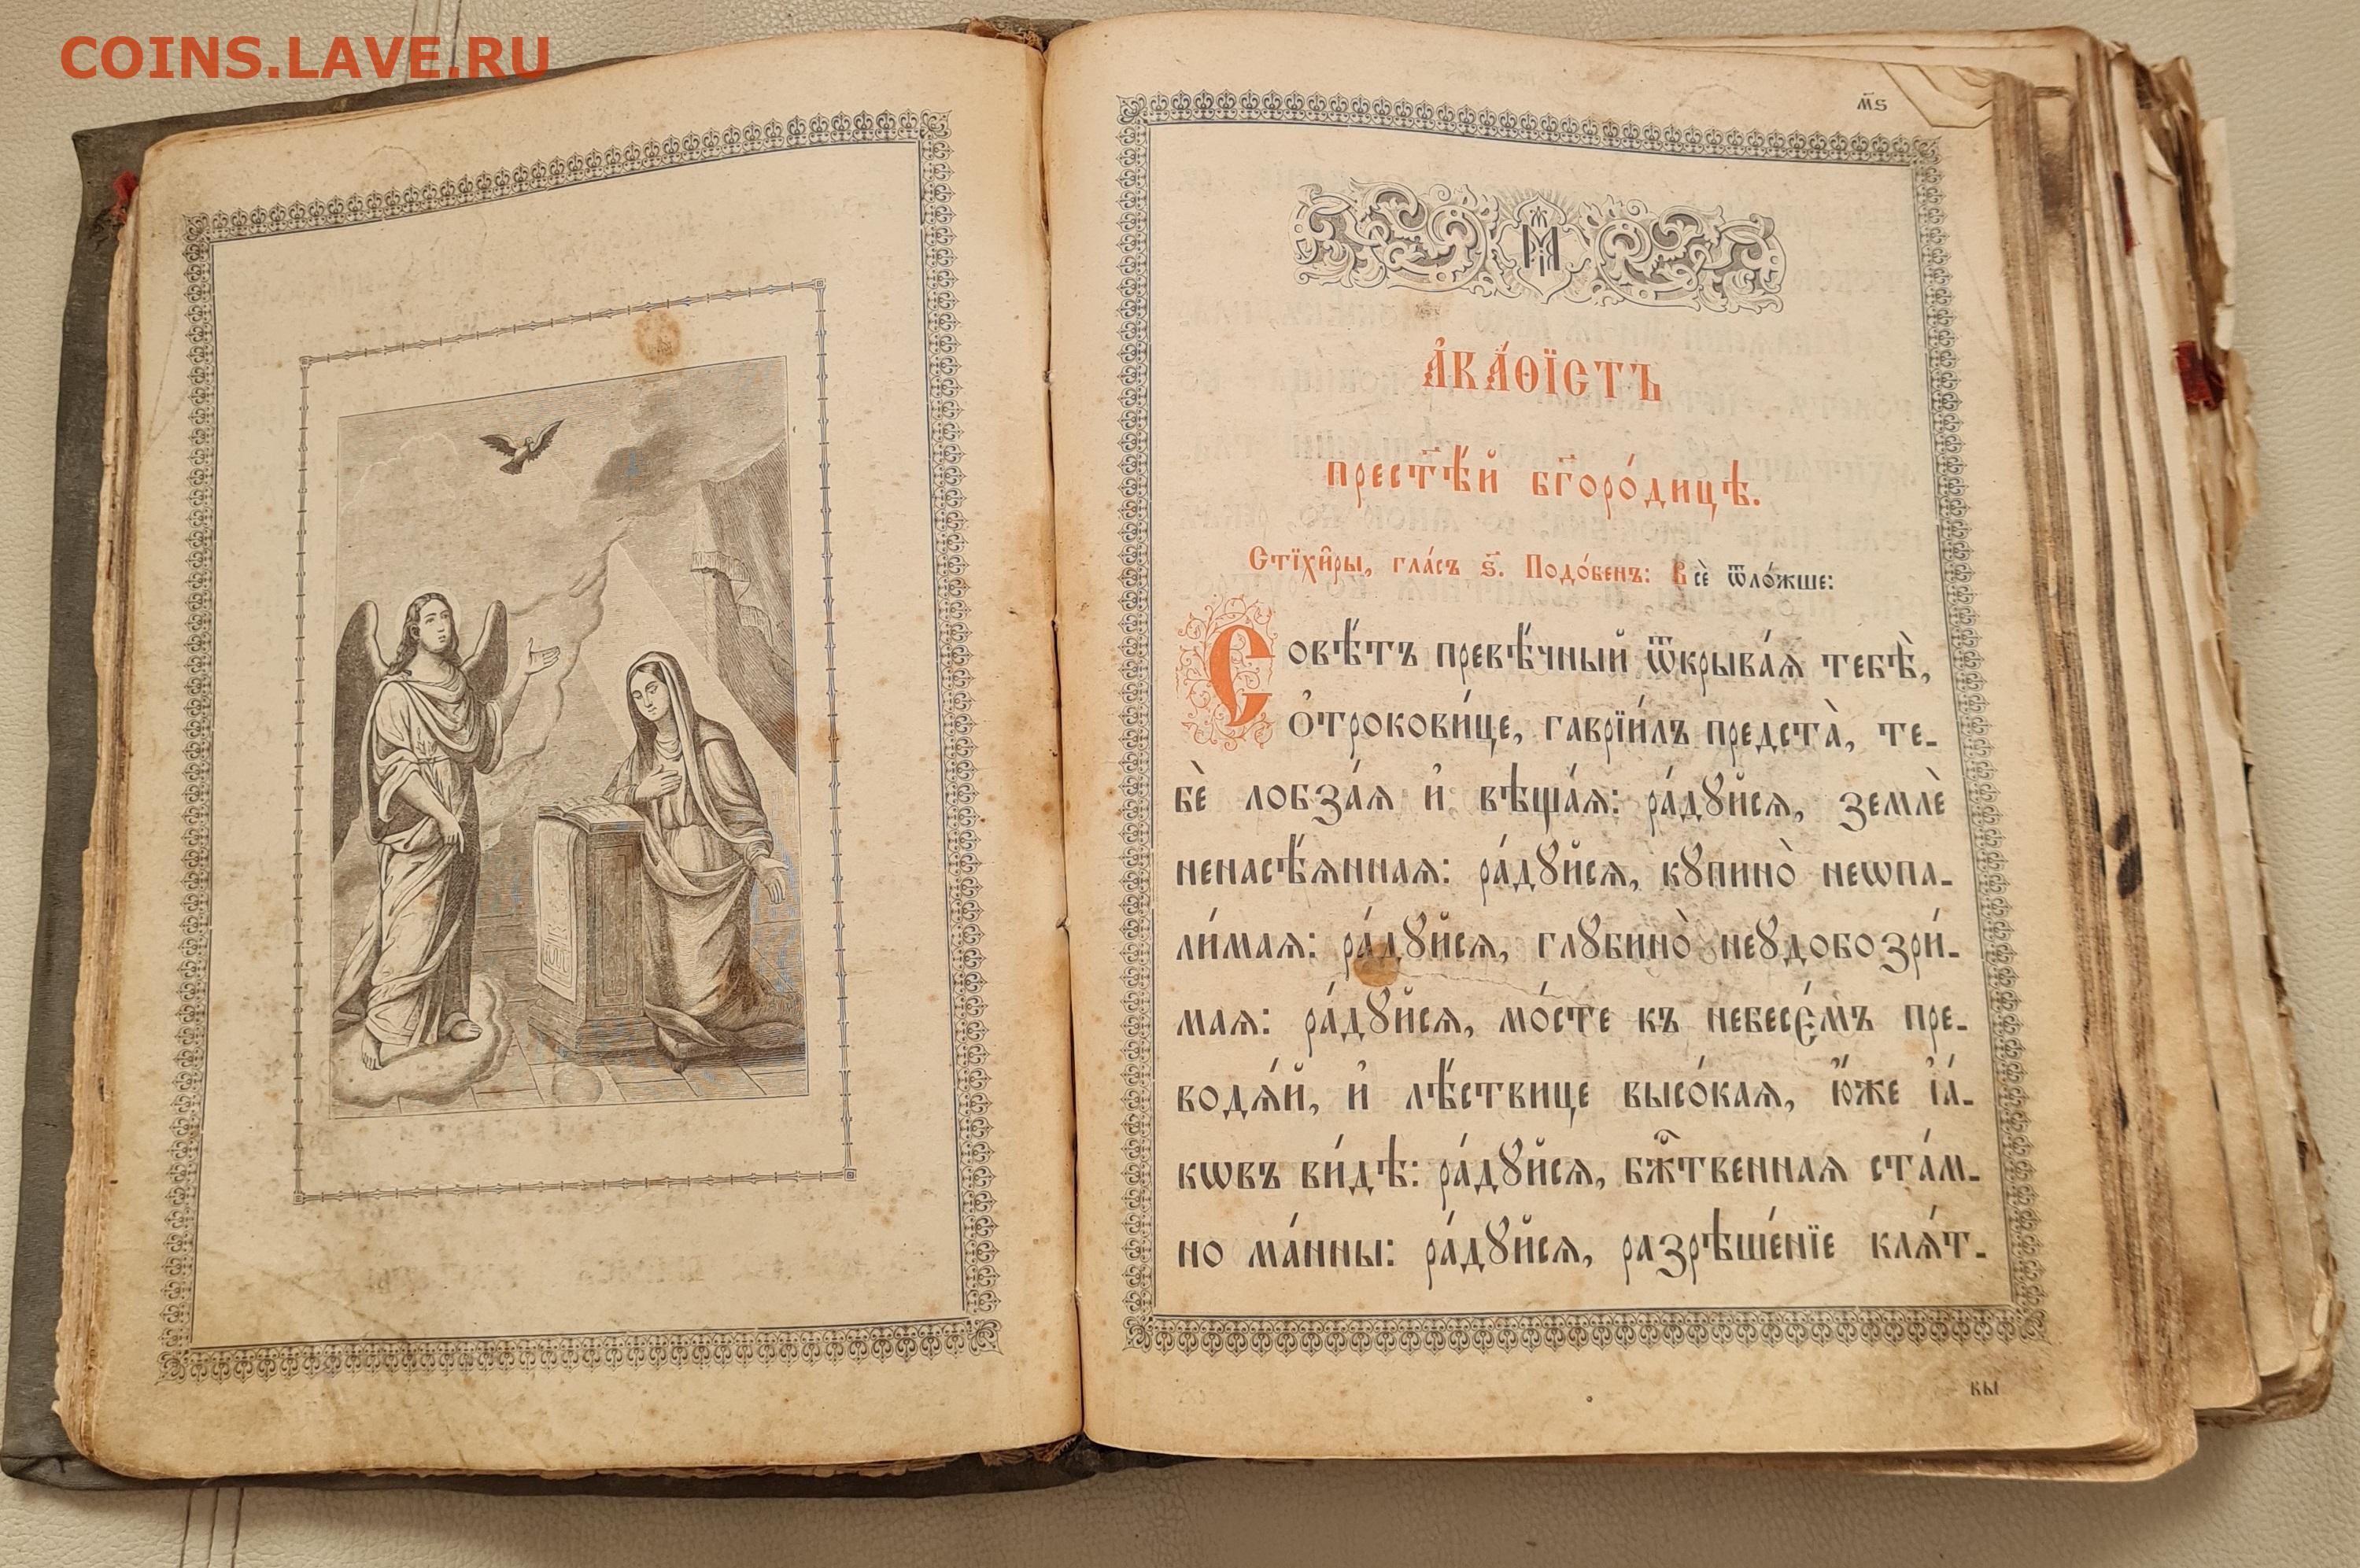 COINS.LAVE.RU
м҃ѕ
А҆КА́ѲЇСТЪ
прест҃ѣ́й бг҃оро́дицѣ.
Стїхи̑ры, гла́съ ѕ҃. Подо́бенъ: Всѐ ѿло́жше:
Совѣ́тъ превѣ́чный ѿкрыва́ѧ тебѣ̀,
ѻ҆трокови́це, гаврїи́лъ предста̀, те-
бѐ лобза́ѧ и҆ вѣща́ѧ: ра́дꙋйсѧ, землѐ
ненасѣ́ѧннаѧ: ра́дꙋйсѧ, кꙋпино̀ неѡпа-
ли́маѧ: ра́дꙋйсѧ, глꙋбино̀ неꙋдобозри́-
маѧ: ра́дꙋйсѧ, мо́сте къ небесє́мъ пре-
водѧ́й, и҆ лѣ́ствице высо́каѧ, ю҆́же і҆а́-
кѡвъ ви́дѣ: ра́дꙋйсѧ, бж҃твеннаѧ ста́м-
но ма́нны: ра́дꙋйсѧ, разрѣше́нїе клѧ́т-
вы